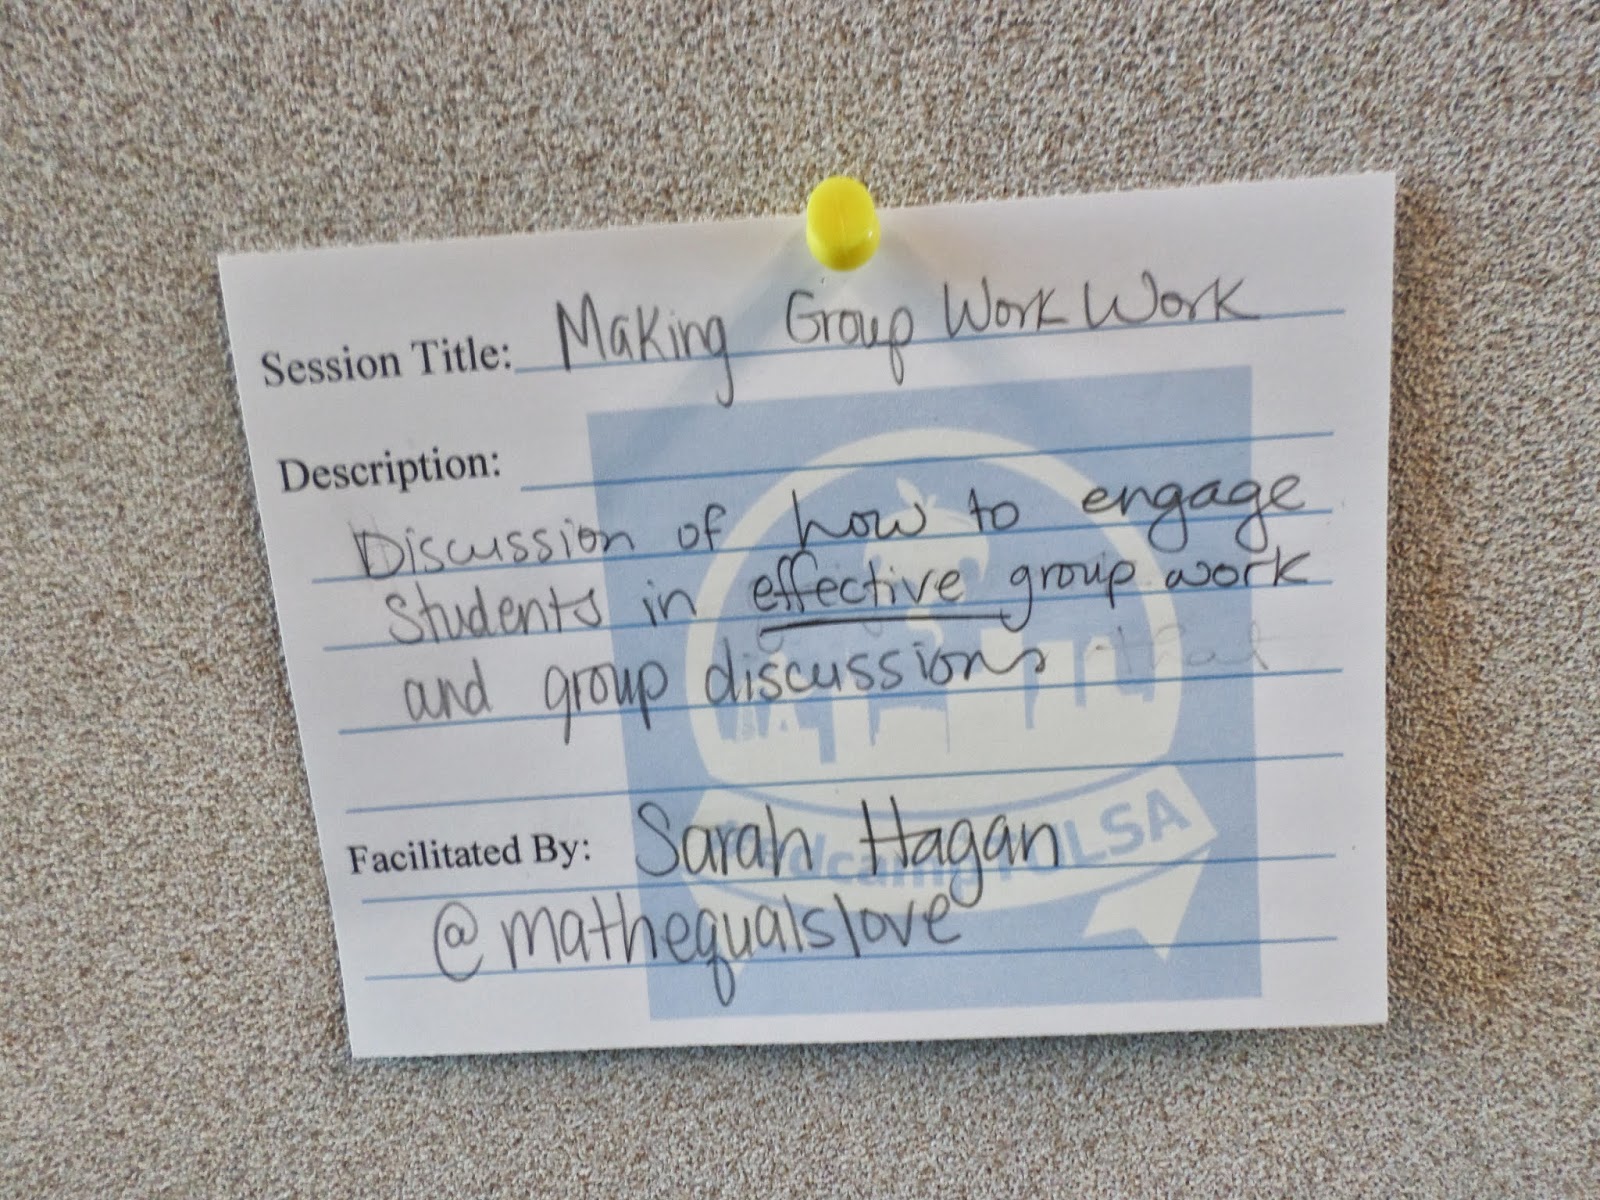 Session Title: Making Group Work Work
Description:
Discussion of how to engage
students in effective group work
and group discussions that
Facilitated By: Sarah Hagan
@mathequalslove
edcampTULSA